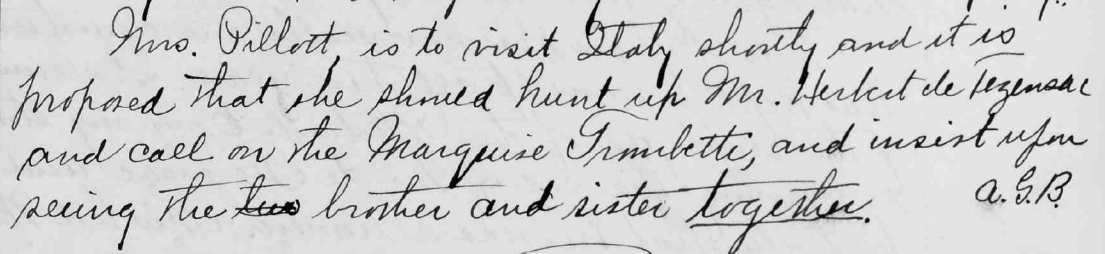 Mrs. Pillott, is to visit Italy shortly and it is
proposed that she should hunt up Mr. Herbert de Fezensac
and call on the Marquise Trombetti, and insist upon
seeing the two brother and sister together.
A.G.B.